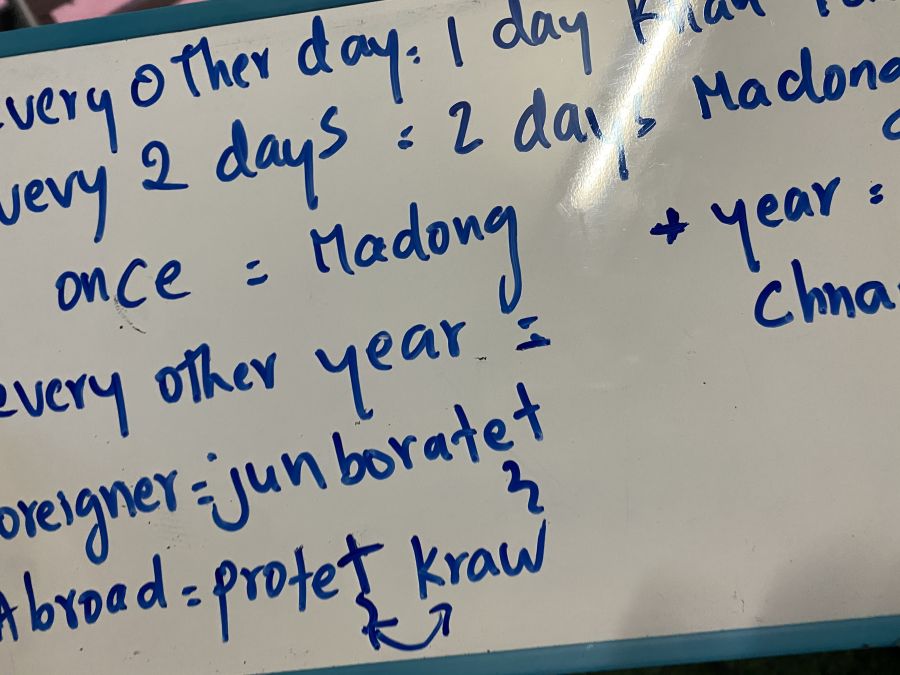 every other day: 1 day khan
every 2 days = 2 days Madong
once = Madong
+ year =
Chna
every other year =
foreigner = junboratet
Abroad = protet kraw